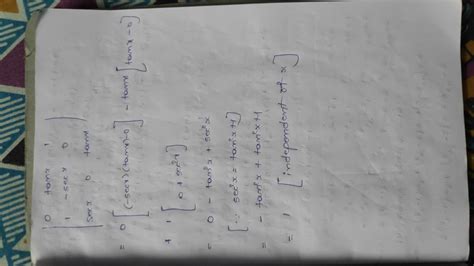 | 0 tanx 1 |
| 1 -secx 0 |
| secx 0 tanx |
= 0 [(-secx)(tanx)-0] - tanx [tanx-0]
+ 1 [0+sec²x]
= 0 - tan²x + sec²x
[∵ sec²x = tan²x+1]
= - tan²x + tan²x+1
= 1 [independent of x]